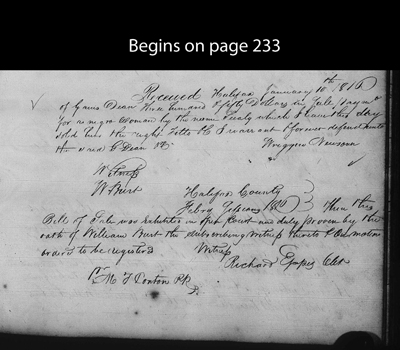 Begins on page 233
Received Halifax January 10th 1816
of Dean three hundred & fifty Dollars in full paym
for a negro woman by the name which I have this day
sold him the right I warrant & forever defend unto
the said G Dean
Newsom
Witness
W. Burt
Halifax County
then this
Bill of Sale was exhibited in open Court and duly proven by the
oath of William Burt the subscribing Witness thereto & on motion
ordered to be registered
Witness
Richard Clk
M F Ponton P.R.